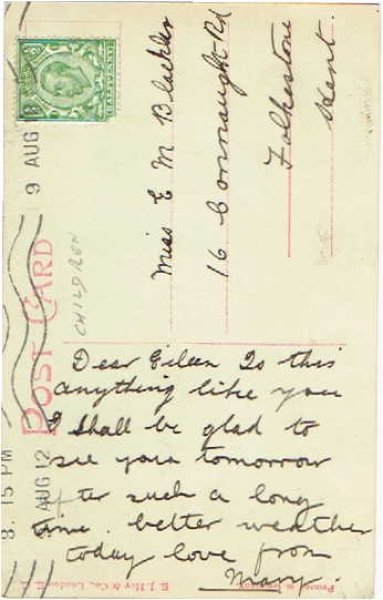 POST CARD
CHILDREN
8. 15 PM
9 AUG 12
HALFPENNY
Miss E M Blackler
16 Connaught Rd
Folkestone
Kent.
Dear Eileen Is this
anything like you
I shall be glad to
see you tomorrow
after such a long
time. better weather
today love from
Mary.
E. J. Hey & Co., London E.C.
Printed in